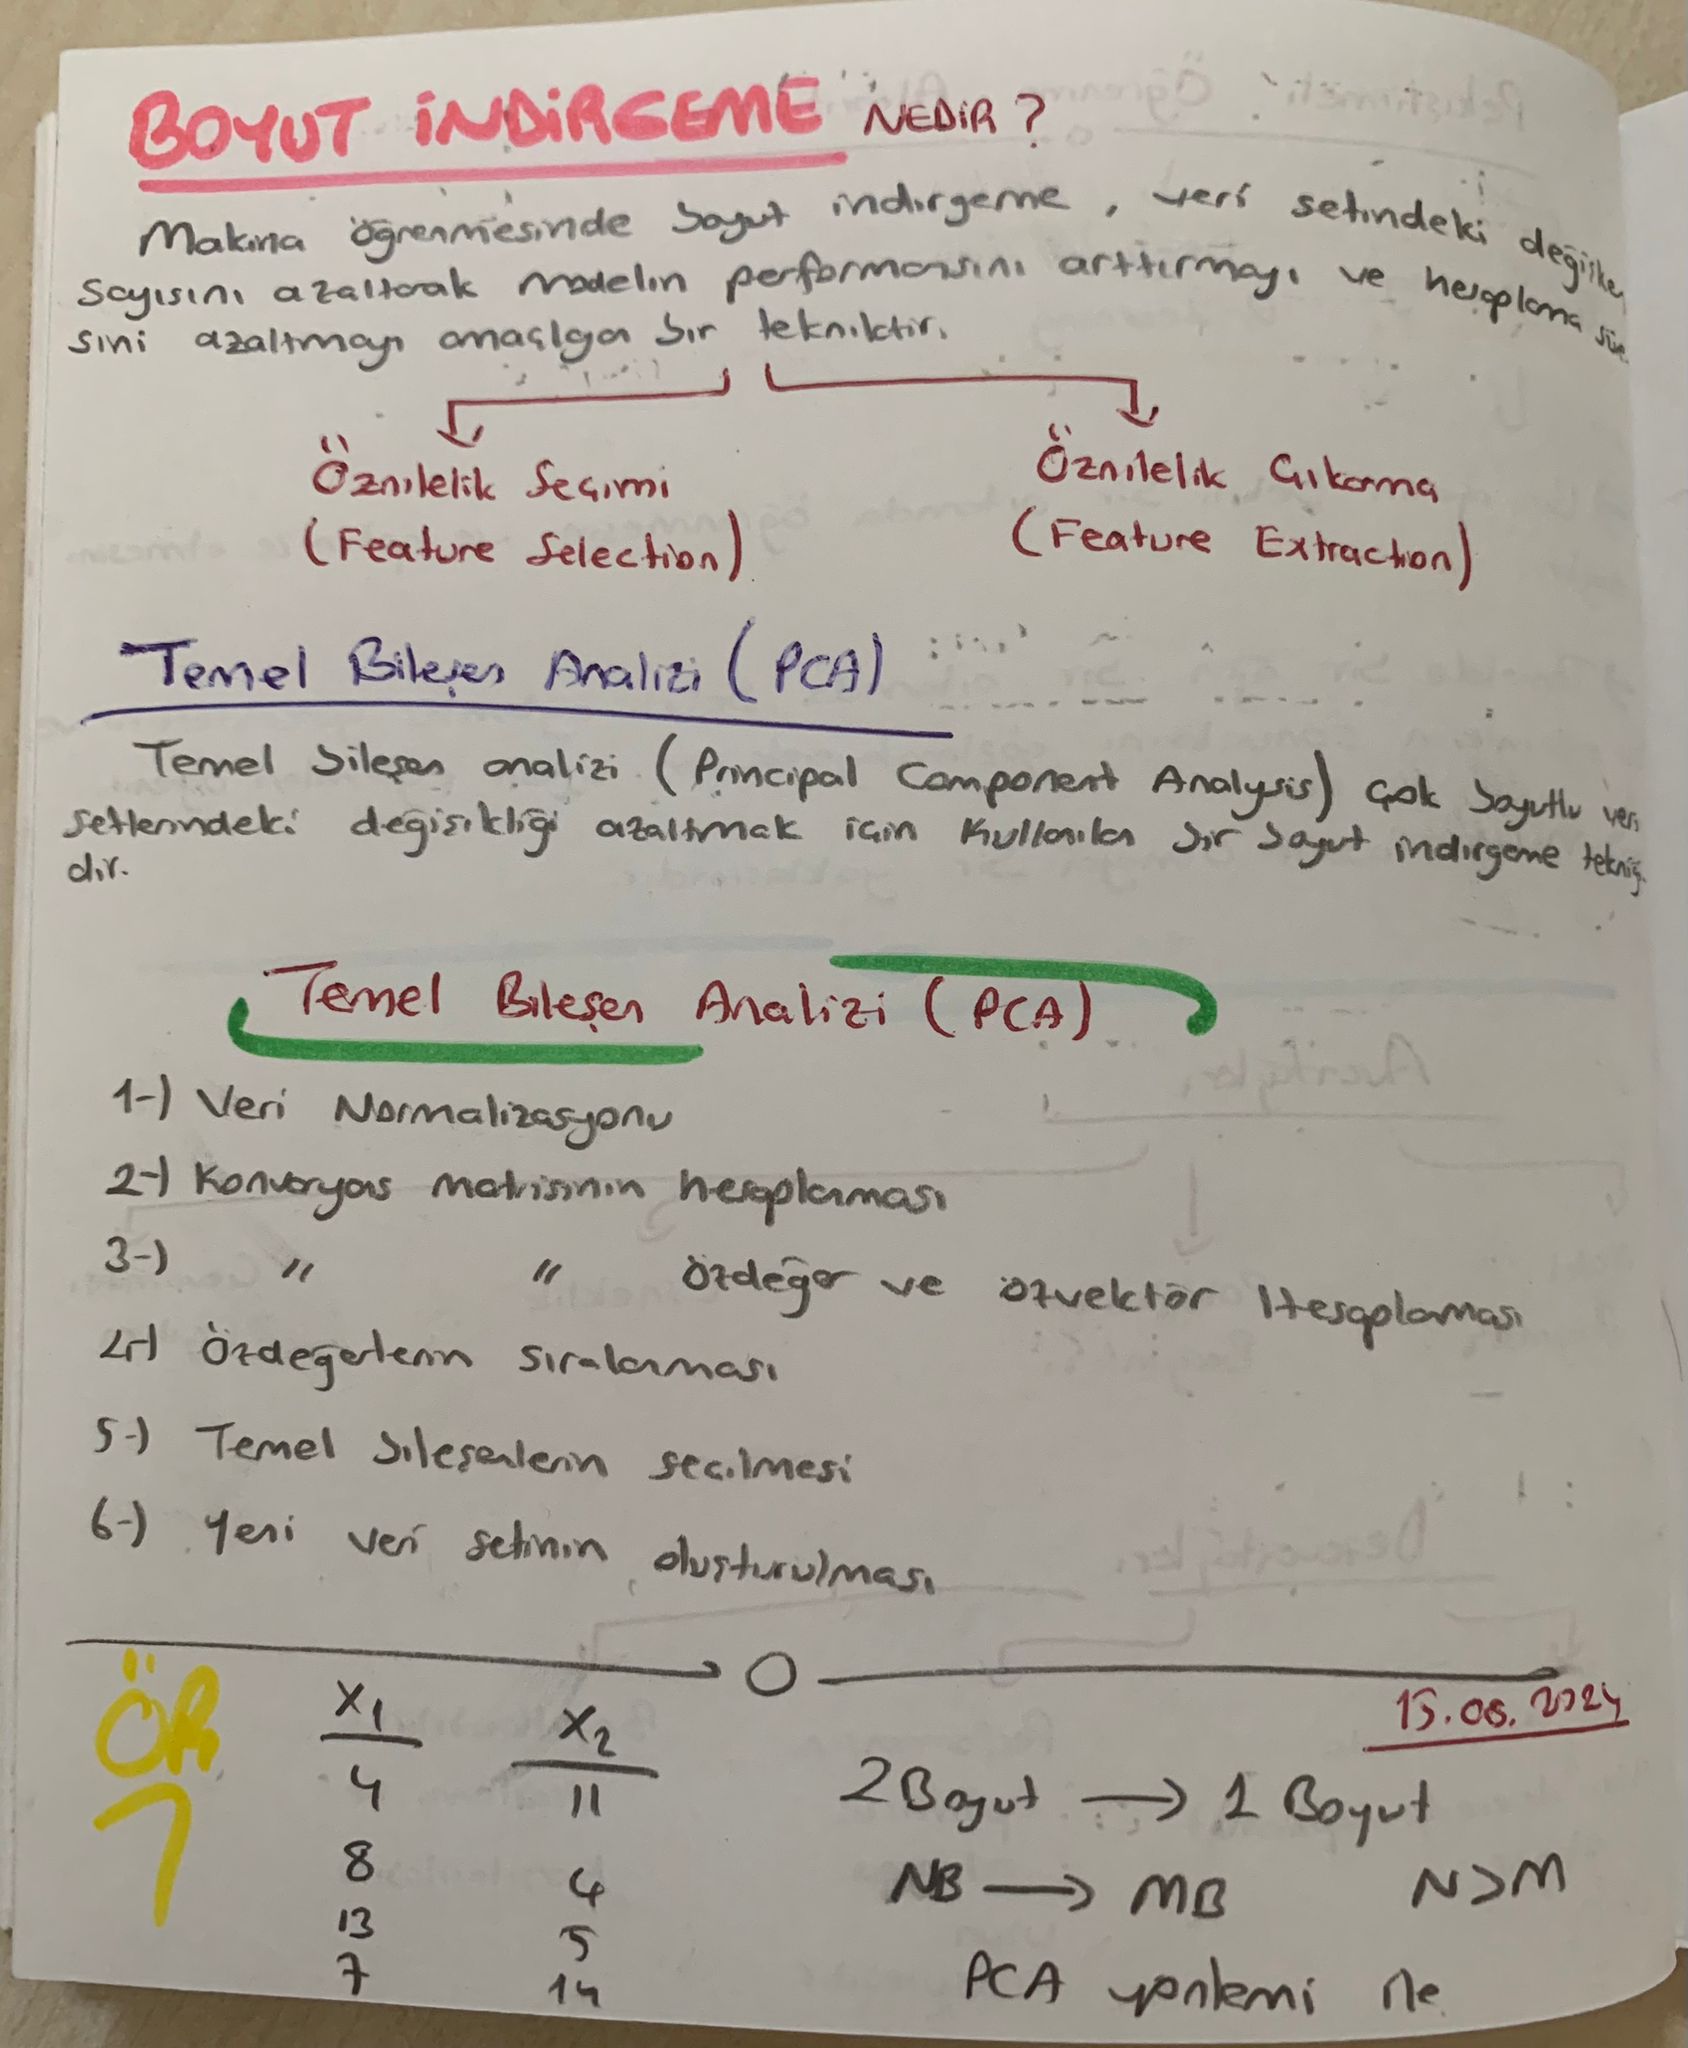 BOYUT İNDİRGEME NEDİR ?
Makina öğrenmesinde boyut indirgeme , veri setindeki değişken
sayısını azaltarak modelin performansını arttırmayı ve hesaplama süre
sini azaltmayı amaçlayan bir tekniktir.
Öznilelik Seçimi
(Feature Selection)
Öznilelik Çıkarma
(Feature Extraction)
Temel Bileşen Analizi (PCA)
Temel bileşen analizi (Principal Component Analysis) çok boyutlu veri
setlerindeki değişikliği azaltmak için kullanılan bir boyut indirgeme tekniği
dir.
Temel Bileşen Analizi (PCA)
1-) Veri Normalizasyonu
2-) Konvaryas matrisinin hesaplanması
3-) " " özdeğer ve özvektör Hesaplaması
4-) Özdeğerlerin sıralanması
5-) Temel bileşenlerin seçilmesi
6-) Yeni veri setinin oluşturulması
15.08.2024
ÖR
X1 X2
4 11
8 4
13 5
7 14
2 Boyut → 1 Boyut
NB → MB N>M
PCA yöntemi ile